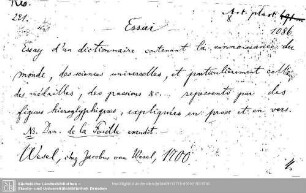 221.
1086.
Essai
Essay d'un dictionnaire contenant la connaissance du
monde, des sciences universelles, et particulierement celle
des médailles, des passions &c... représenté par des
figures hieroglyphiques, expliquées en prose et en vers.
Dan. de la Feuille excudit.
Wesel, chez Jacobus van Wesel, 1700.